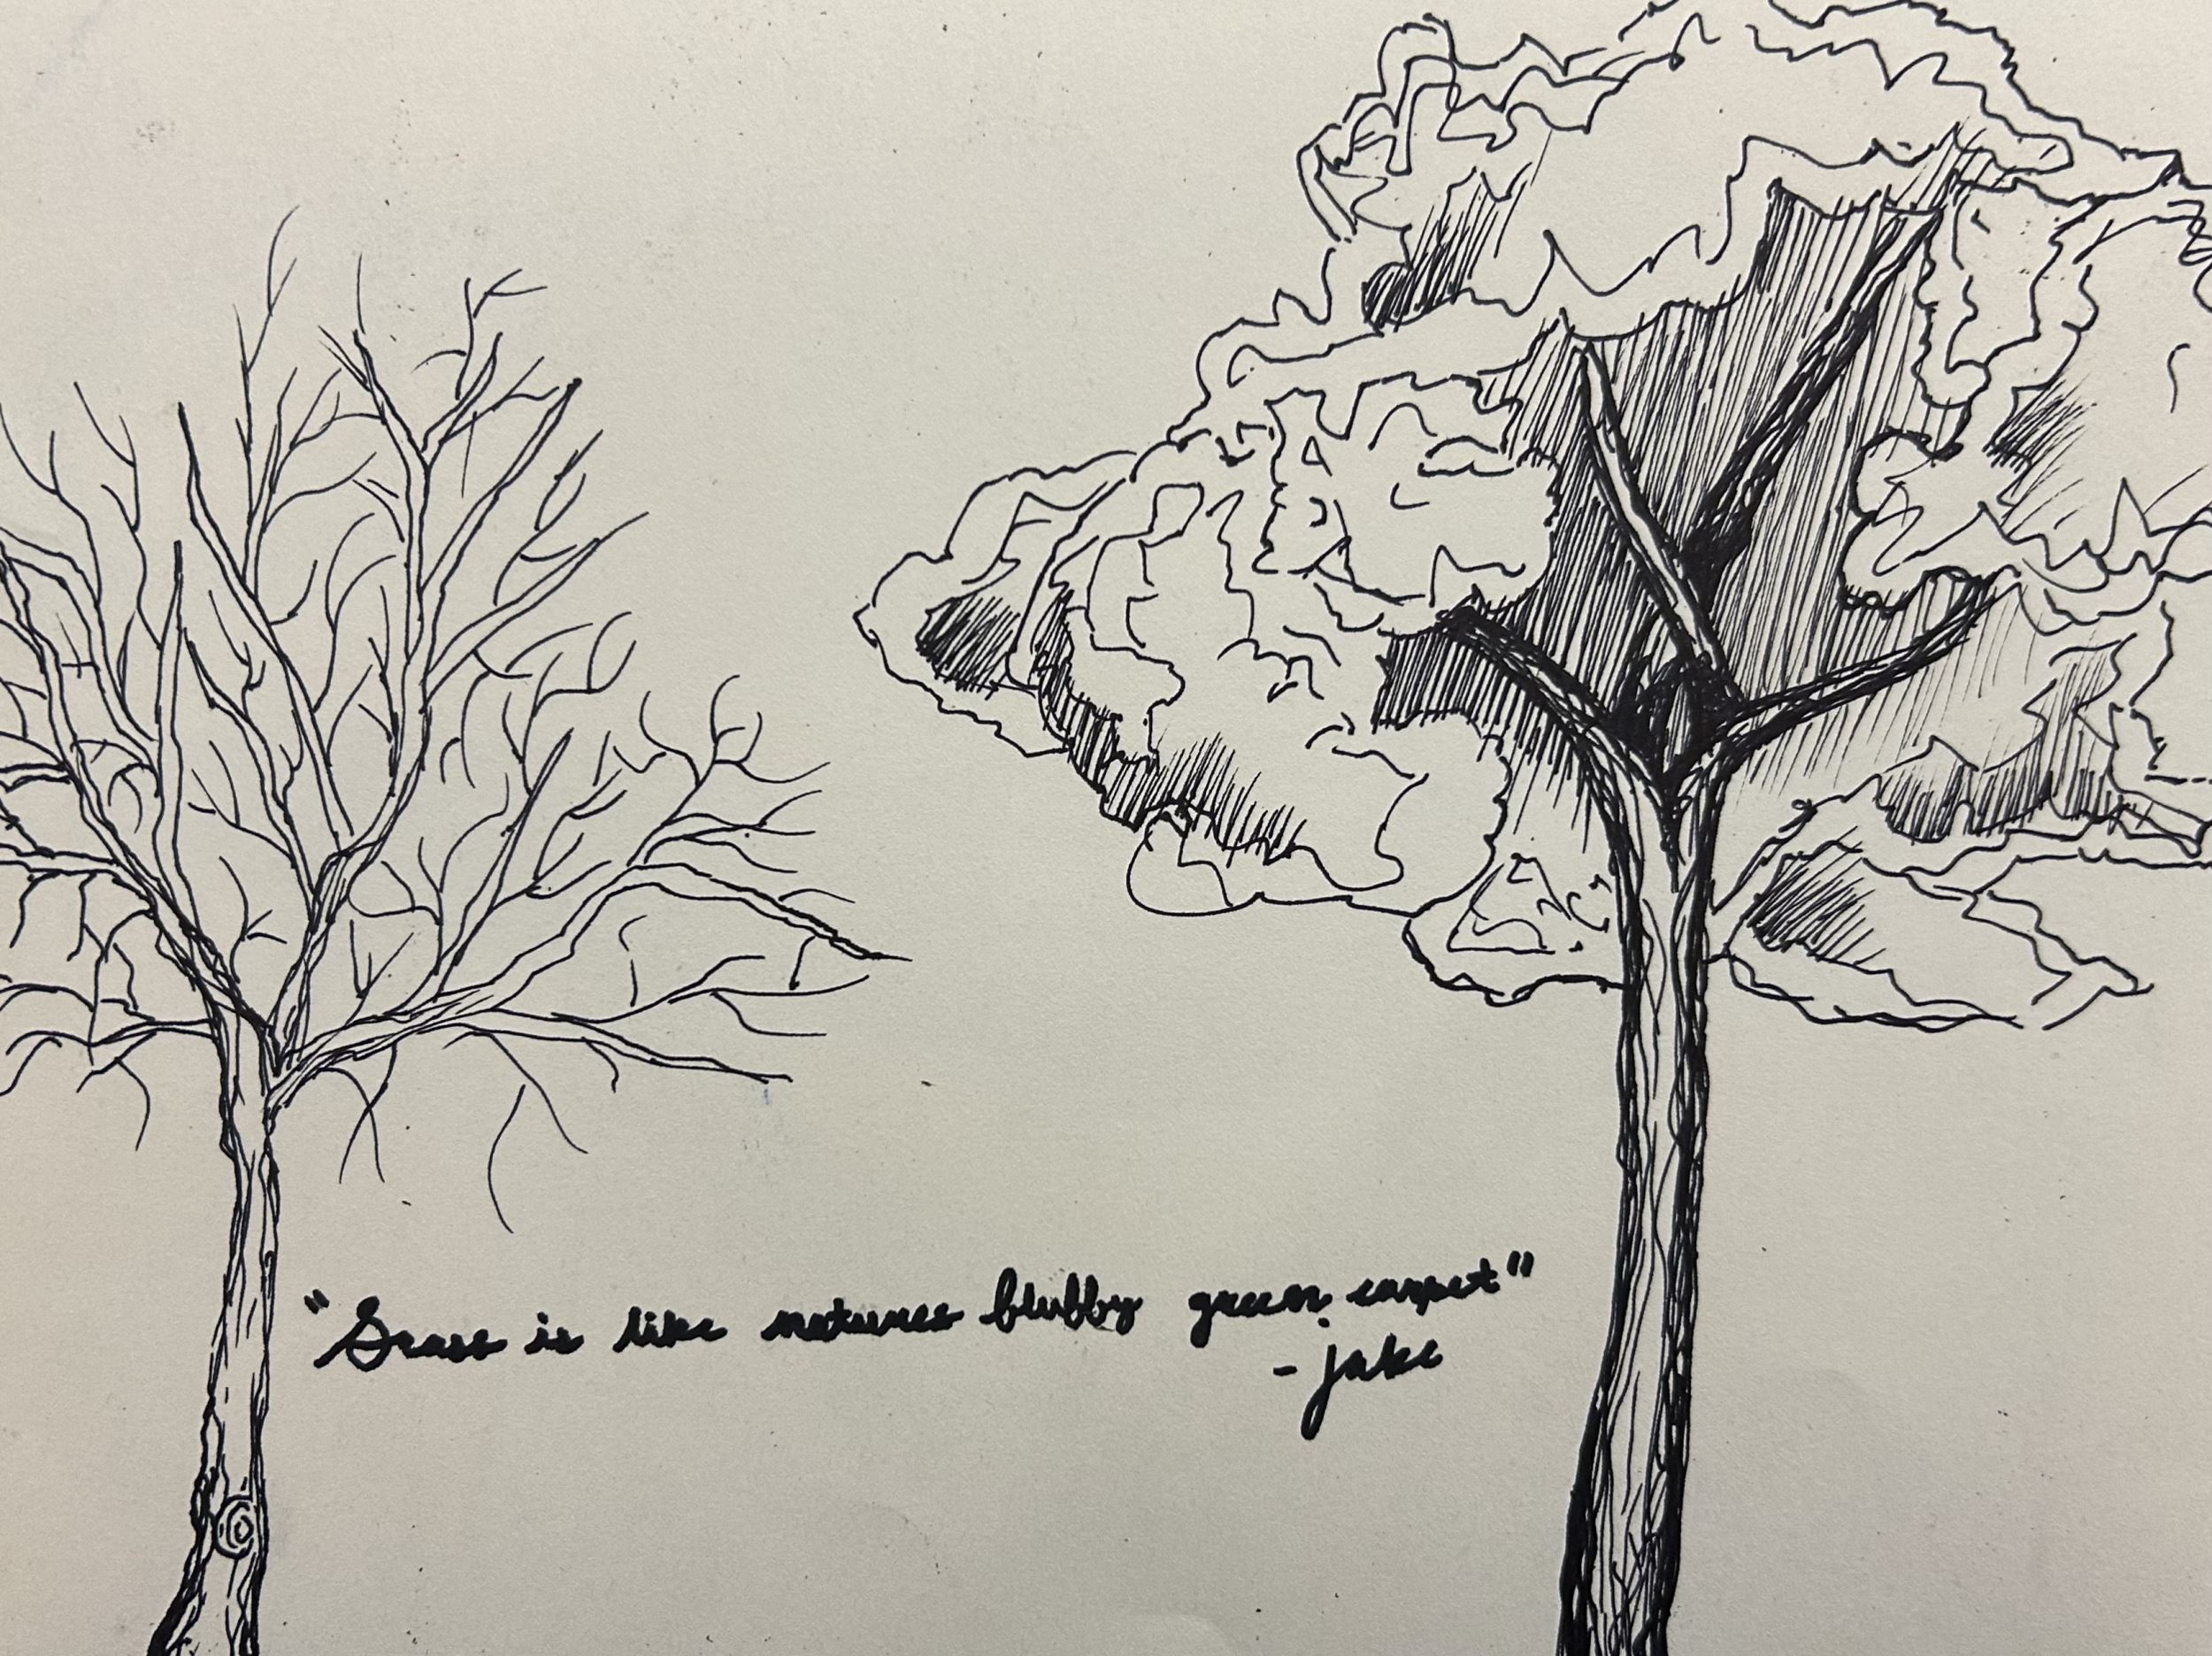 "Grass is like natures blubby green carpet"
- Jake